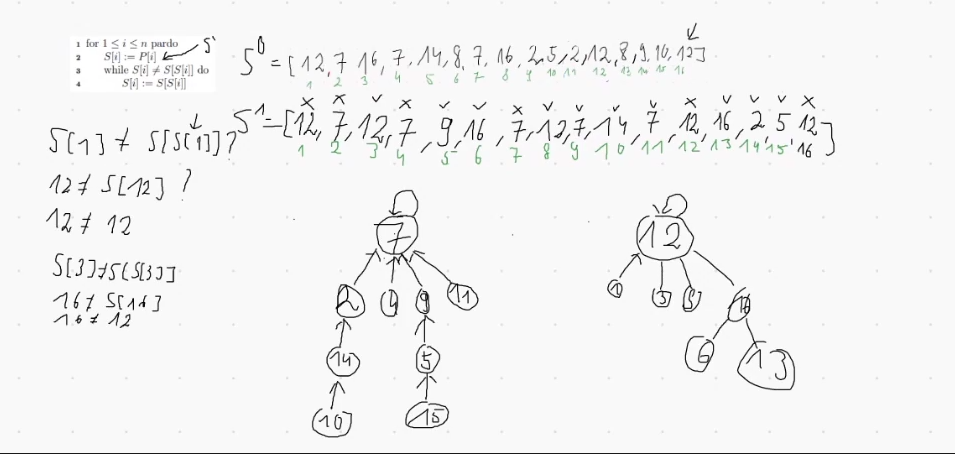 1 for 1 ≤ i ≤ n pardo
2 S[i] := P[i]
3 while S[i] ≠ S[S[i]] do
4 S[i] := S[S[i]]
S
S⁰ = [12,7 16,7,14,8,7,16,2,5,2,12,8,9,10,12]
1 2 3 4 5 6 7 8 9 10 11 12 13 14 15 16
x x v x v v x v v v v x v v v x
S¹ = [12, 7, 12, 7, 9, 16, 7, 12, 7, 14, 7, 12, 16, 2 5 12]
1 2 3 4 5 6 7 8 9 10 11 12 13 14 15 16
S[1] ≠ S[S[1]]?
12 ≠ S[12] ?
12 ≠ 12
S[3]≠S[S[3]]
16 ≠ S[16]
16 ≠ 12
7
2 4 9 11
14 5
10 15
12
1 3 8 16
6 13